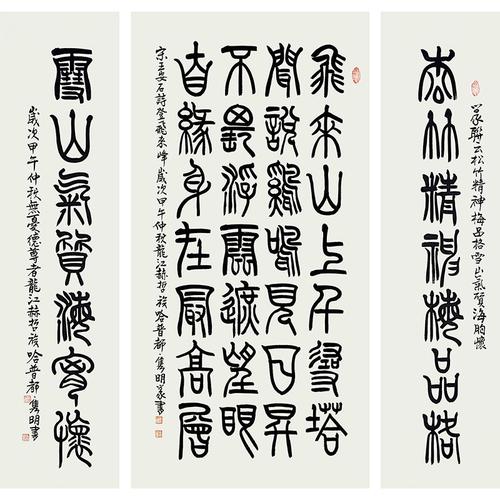 松竹精神梅品格
篆聯云松竹精神梅品格雪山氣質海胸懷
飛來山上千尋塔
聞說雞鳴見日昇
不畏浮雲遮望眼
自緣身在最高層
宋王安石詩登飛來峰歲次甲午仲秋龍江赫哲族哈普都·雋明篆書
雪山氣質海胸懷
歲次甲午仲秋無憂德尊者龍江赫哲族哈普都·雋明書